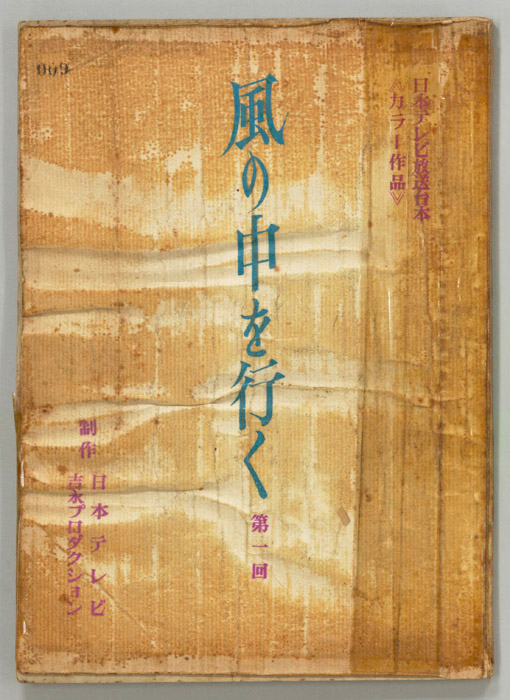 009
日本テレビ放送台本
《カラー作品》
風の中を行く
第一回
制作 日本テレビ
吉永プロダクション